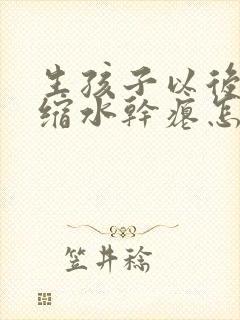 生孩子以後
缩水幹瘪怎
笠井稔